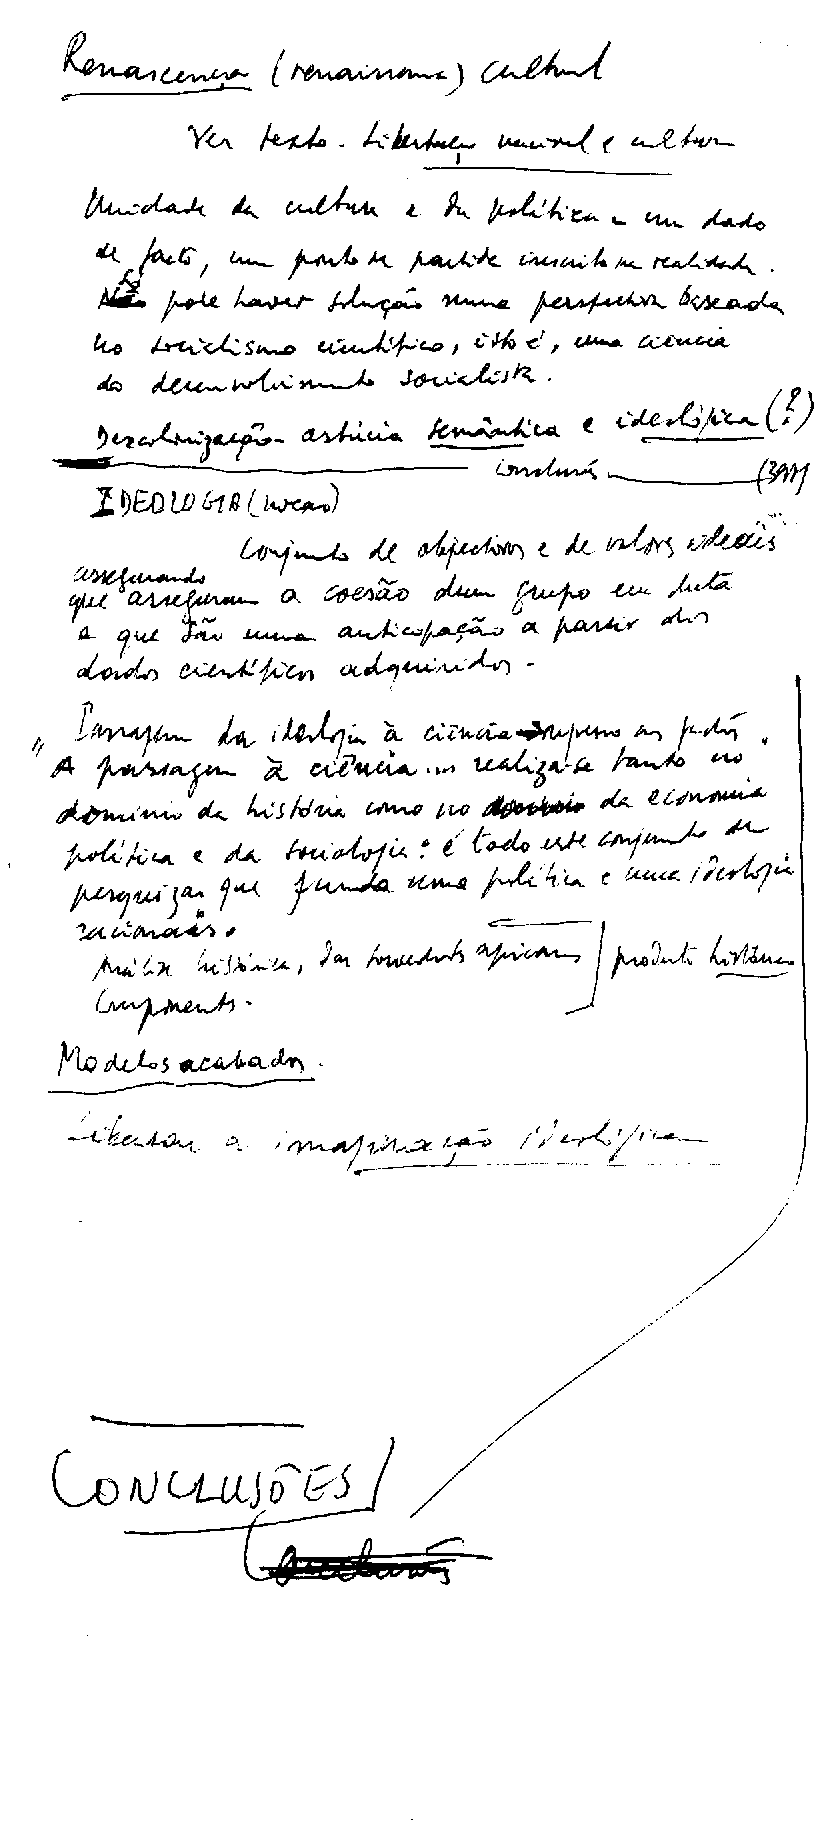 Renascença (renaissance) cultural
Ver texto - Libertação nacional e cultura
Unidade da cultura e da política - um dado
de facto, um ponto de partida inscrito na realidade.
Só pode haver solução numa perspectiva baseada
no socialismo científico, isto é, uma ciência
do desenvolvimento socialista.
Descolonização - astúcia semântica e ideológica (?)
Conclusão
IDEOLOGIA (noção)
Conjunto de objectivos e de valores ideais
assegurando
que asseguram a coesão dum grupo em luta
e que são uma anticipação a partir dos
dados científicos adquiridos -
Passagem da ideologia à ciência
" A passagem à ciência ... realiza-se tanto no
domínio da história como no domínio da economia
política e da sociologia: é todo este conjunto de
pesquizas que funda uma política e uma ideologia
racionais.
Análise histórica, das sociedades africanas produto histórico
Componentes -
Modelos acabados.
Libertar a imaginação ideológica
CONCLUSÕES